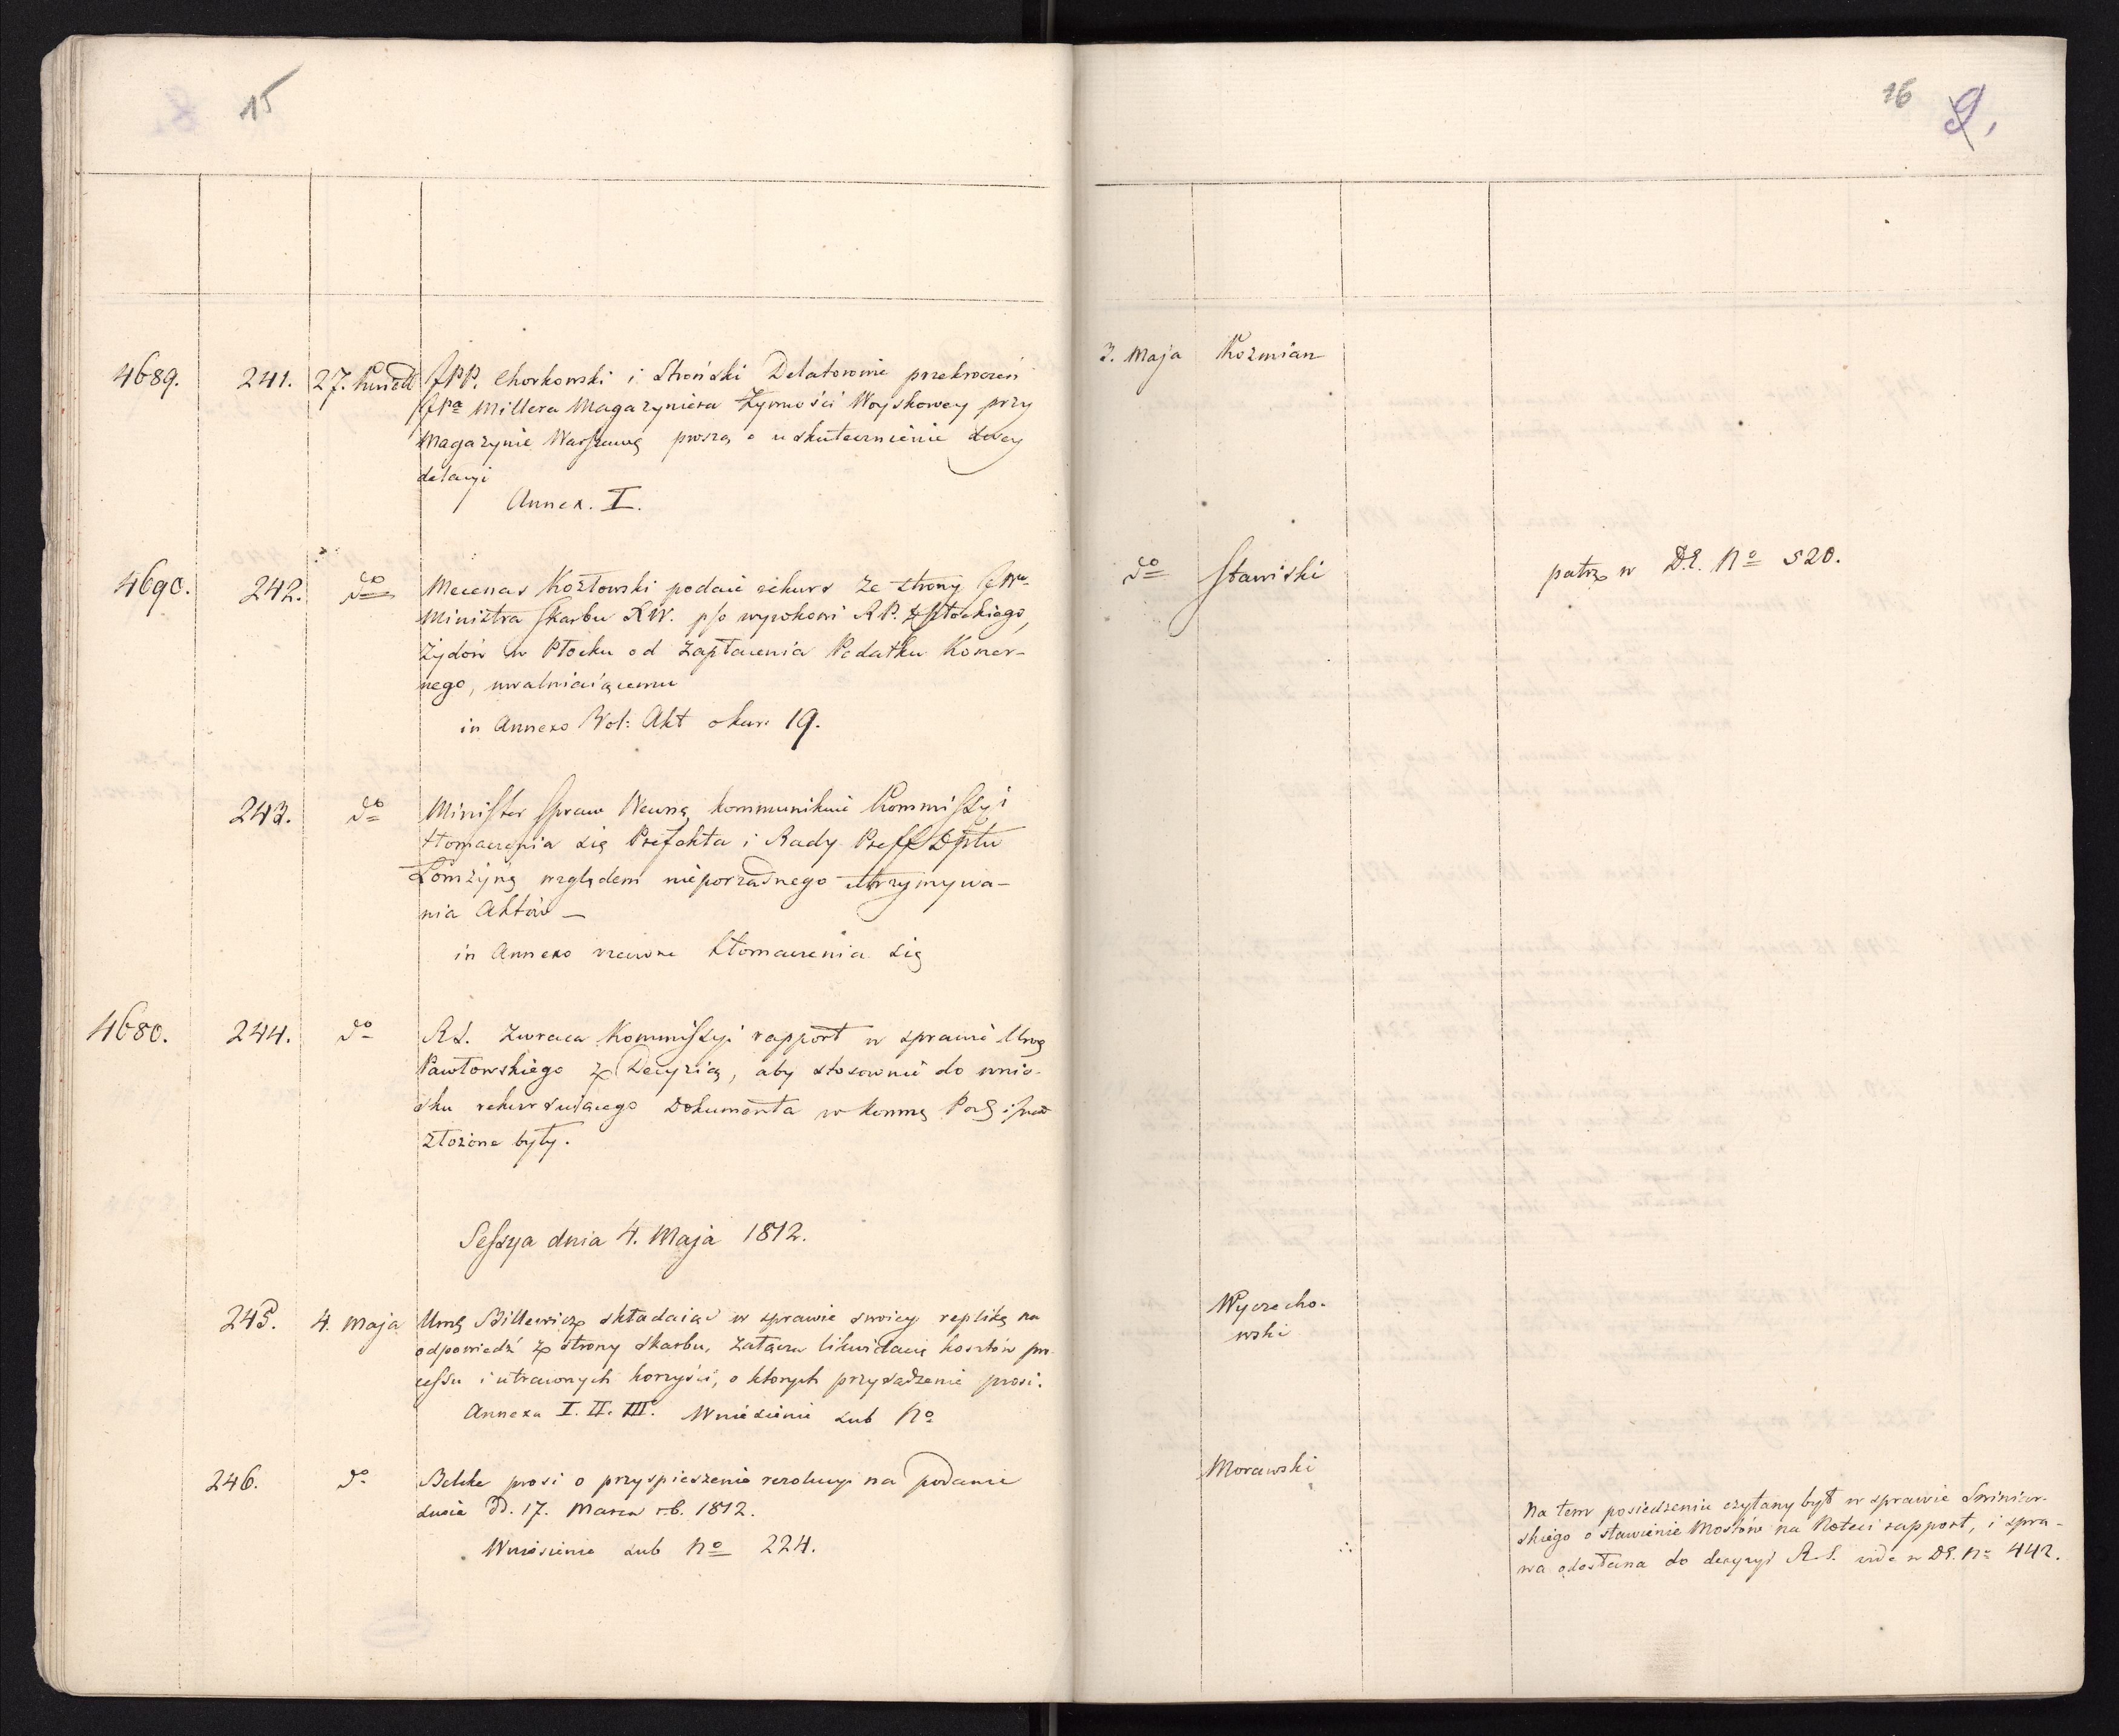 15
4689. 241. 27. Kwiet JPP. Chorkowski i Stroński Delatorowie przekroczeń
JPa Millera Magazyniera Żywności Woyskowey przy
Magazynie Warszawą proszą o uskutecznienie swey
delacyi
Annex. I.
4690. 242. do Mecenas Kozłowski podaie rekurs ze strony JW
Ministra Skarbu XW. p/o wyrokowi R.P. Płockiego,
Żydów w Płocku od zapłacenia Podatku Konser-
nego, uwalniaiącemu
in Annexo Vol: Akt okur 19.
243. do Minister Spraw Wewnę kommunikuie Kommissyi
tłomaczenia się Prefekta i Rady Preff Dptu
Łomżyną względem nieporządnego utrzymywa-
nia Aktów —
in Annexo rzeczone tłomaczenia się
4680. 244. do R.S. zwraca Kommissyi rapport w sprawie Urog
Pawłowskiego z Decyzią, aby stosownie do wnio-
sku rekurruiącego Dokumenta w Kommę
złożone były.
Sessya dnia 4. Maja 1812.
245. 4. Maja Urog Billewicz składaiąc w sprawie swoiey replikę na
odpowiedź ze strony Skarbu, załącza likwidacię kosztów pro-
cessu i utraconych korzyści, o których przysądzenie prosi.
Annexa I. II. III. Wniesienie sub No
246. do Belcke prosi o przyspieszenie rezolucyi na podanie
swoie D. 17. Marca r.b. 1812.
Wniesienie sub No 224.
16 9.
3. Maja Kozmian
do Stawiski patrz w D.E. No 520.
Wyczecho-
wski
Morawski
Na tem posiedzeniu czytany był w sprawie Swiniar-
skiego o stawienie Mostów na Noteci rapport, i spra-
wa odesłana do decyzyi R.S. vide w DE. No 442.